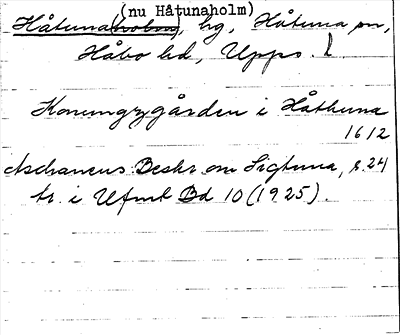 (nu Håtunaholm)
Håtunaholm, hg, Håtuna sn,
Håbo hd, Upps. l
Konungzgården i Håthuna
1612
Aschaneus Beskr om Sigtuna, s. 24
tr. i Ufmt Bd 10 (1925).